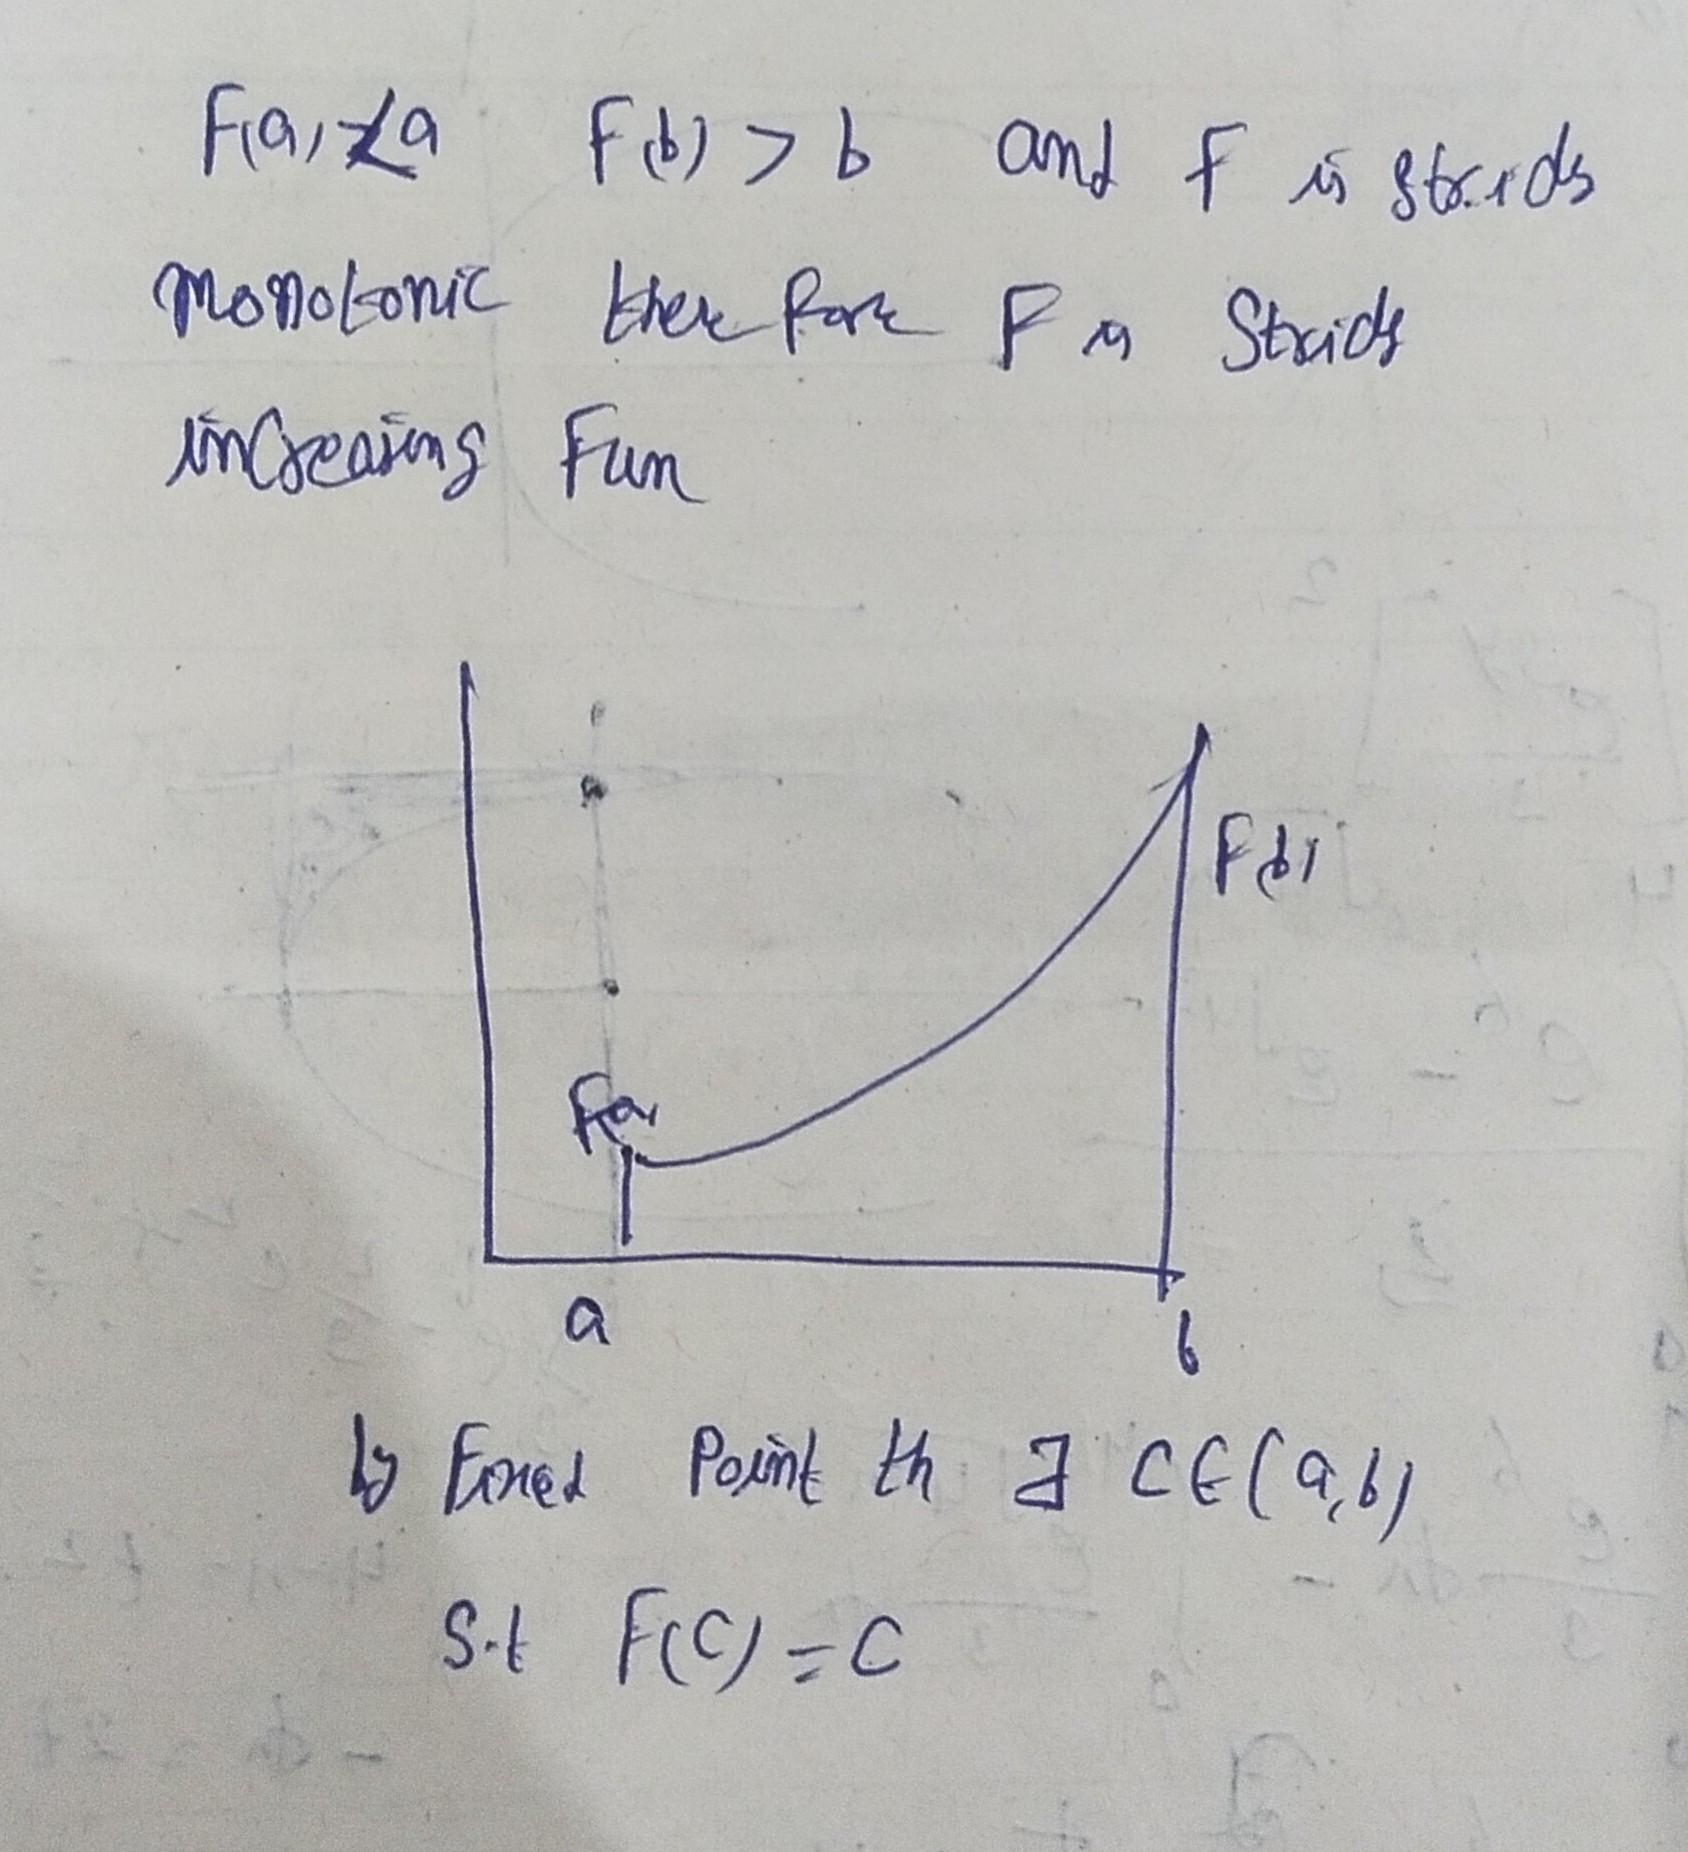 F(a) < a F(b) > b and F is strictly
monotonic therefore F is strictly
increasing Fun
F(a)
F(b)
a
b
by Fixed Point th ∃ C ∈ (a, b)
S.t F(C) = C